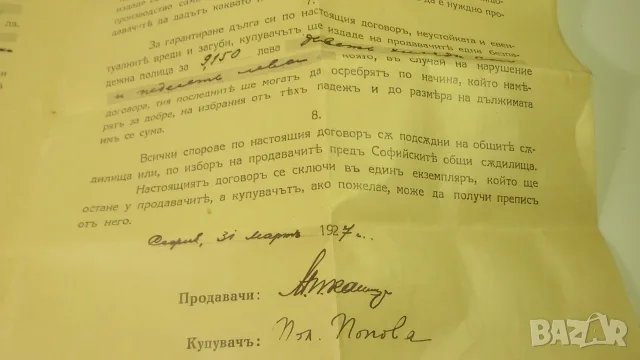 7.
За гарантиране дълга си по настоящия договор, неустойката и евен-
туалнитѣ вреди и загуби, купувачътъ ще издаде на продавачитѣ една безпа-
дежна полица за 9150 лева
и педесеть лева която, въ случай на нарушение
договора, тия последнитѣ ще могатъ да осребрятъ по начина, който намѣ-
рятъ за добре, на избрания отъ тѣхъ падежъ и до размѣра на дължимата
имъ се сума.
8.
Всички спорове по настоящия договоръ сѫ подсѫдни на общитѣ сѫ-
дилища или, по изборъ на продавачитѣ предъ Софийскитѣ общи сѫдилища.
Настоящиятъ договоръ се сключи въ единъ екземпляръ, който ще
остане у продавачитѣ, а купувачътъ, ако пожелае, може да получи преписъ
отъ него.
София, 31 мартъ 1927 г.
Продавачи:
Купувачъ: Пол. Попова
BAZAR
bg